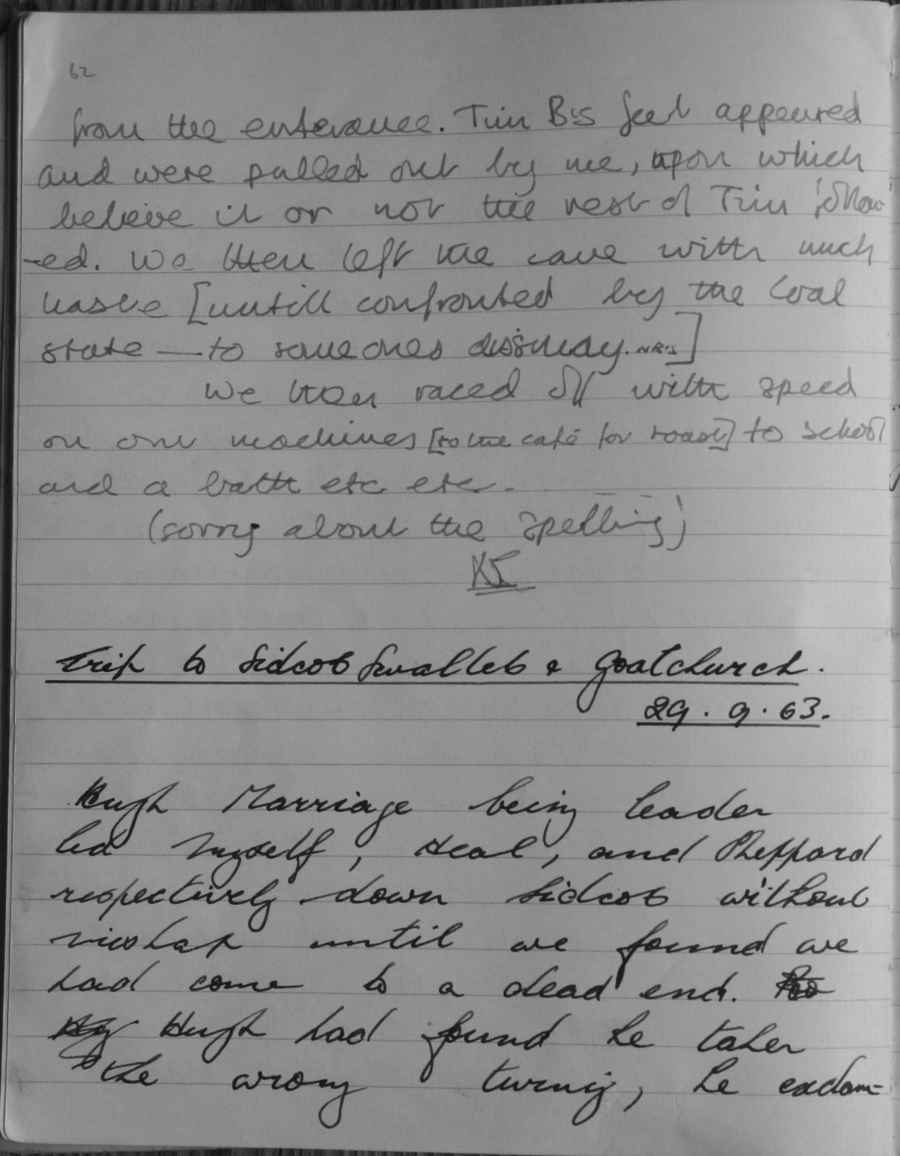 62
from the enterance. Tim B's feet appeared
and were pulled out by me, upon which
believe it or not the rest of Tim 'show'
-ed. We then left the cave with much
haste [untill confronted by the coal
state — to someones dissmay. NR's]
We then raced off with speed
on our machines [to the café for roast] to school
and a bath etc etc.
(sorry about the spelling)
KI
Trip to Sidcot Swallet & Goatchurch.
29.9.63.
Hugh Marriage being leader
led myself, Heal, and Sheppard
respectively down Sidcot without
mishap until we found we
had come to a dead end.
Hugh had found he taken
the wrong turning, he exclam-